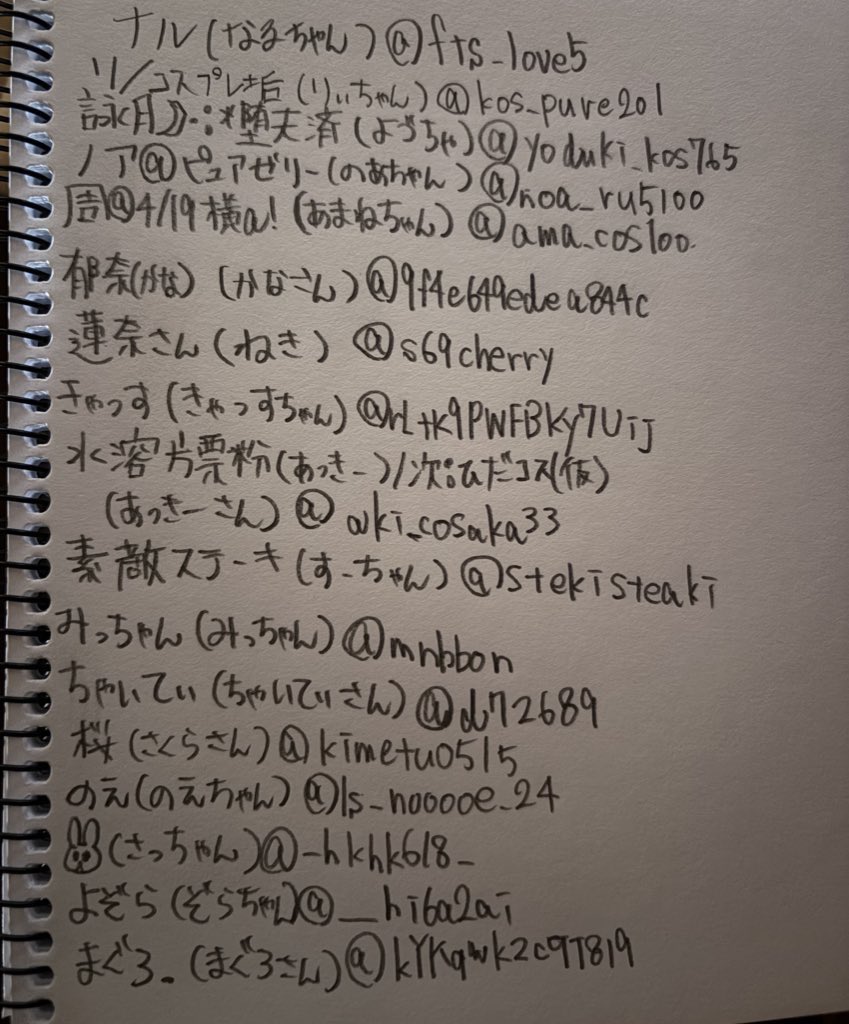 ナル(なるちゃん)@fts_love5
リ/コスプレ垢(りぃちゃん)@kos_pure201
詠月☽･:*堕天済(よづちゃ)@yoduki_kos765
ノア@ピュアゼリー(のあちゃん)@noa_ru5100
周@4/19横a!(あまねちゃん)@ama_cos100
郁奈(かな)(かなさん)@9f4e649edea844c
蓮奈さん(ねき)@s69cherry
きゃっす(きゃっすちゃん)@rLtK9PWFBKy7Uij
水溶片票粉(あっきー)/次:ひだコス(仮)
(あっきーさん)@aki_cosaka33
素敵ステーキ(すーちゃん)@stekisteaki
みっちゃん(みっちゃん)@mnbbon
ちゃいてぃ(ちゃいてぃさん)@d72689
桜(さくらさん)@kimetu0515
のえ(のえちゃん)@ls_nooooe_24
🐰(さっちゃん)@_hkhk618_
よぞら(ぞらちゃん)@__hi6a2ai
まぐろ。(まぐろさん)@kYKqwk2c9T819